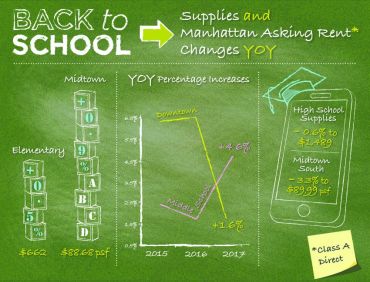 BACK to
SCHOOL
Supplies and
Manhattan Asking Rent*
Changes YOY
Midtown
+
0
.
9
%
A
B
C
D
$88.68 psf
Elementary
+
0
.
5
%
$662
YOY Percentage Increases
Downtown
+4.6%
Middle School
+1.6%
2015 2016 2017
High School
Supplies
- 0.6% to
$1,489
Midtown
South
- 3.3% to
$89.99 psf
*Class A
Direct